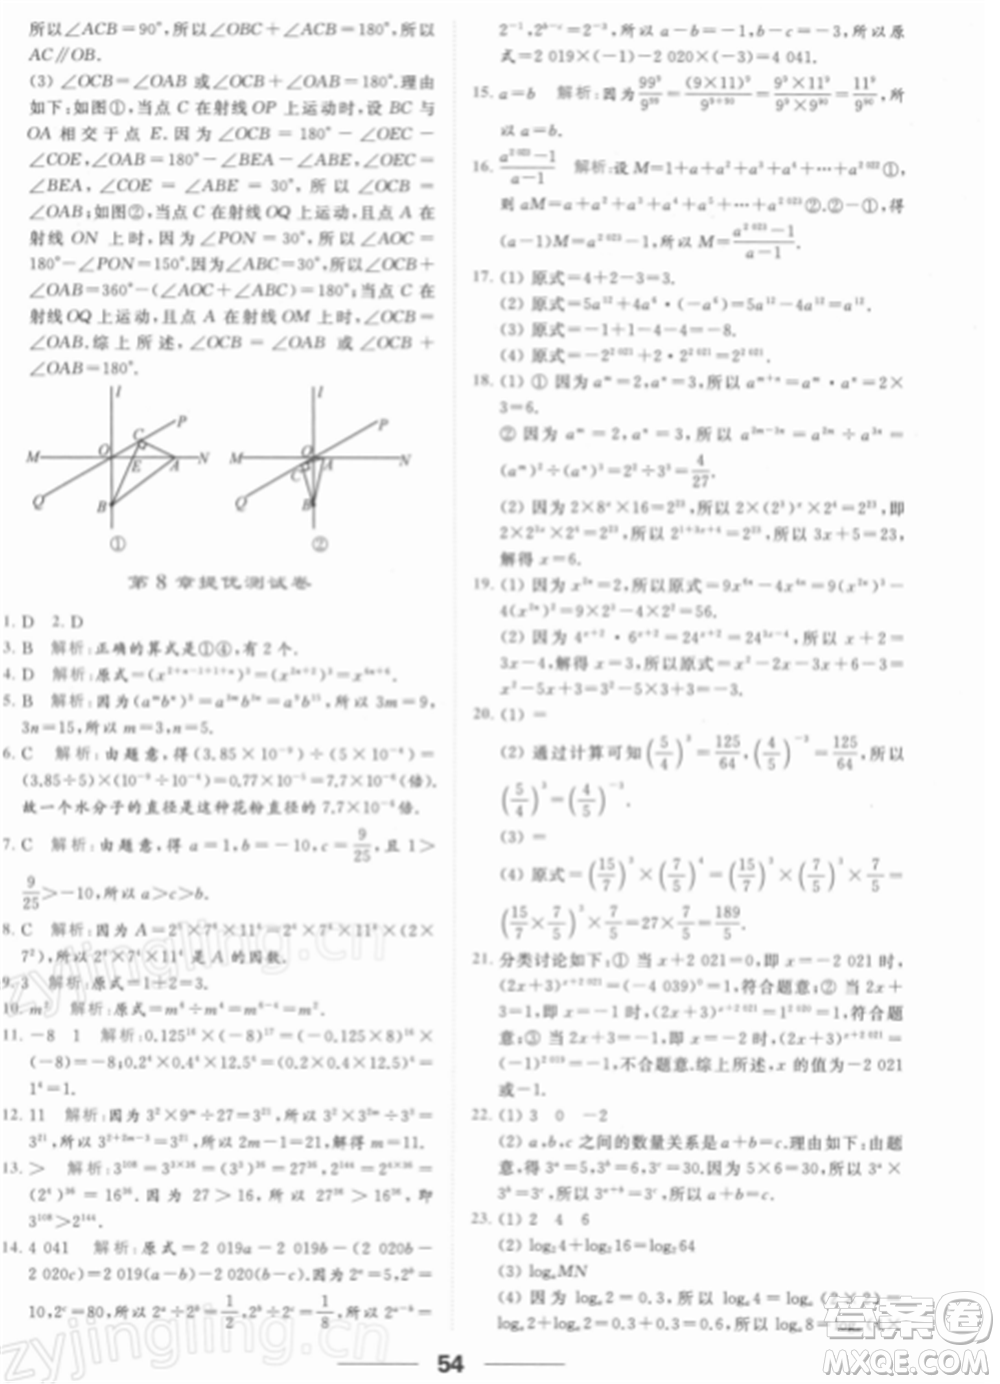 所以∠ACB=90°,所以∠OBC+∠ACB=180°,所以
AC∥OB.
(3) ∠OCB=∠OAB 或∠OCB+∠OAB=180°.理由
如下:如图①,当点 C 在射线 OP 上运动时,设 BC 与
OA 相交于点 E.因为∠OCB=180°-∠OEC-
∠COE,∠OAB=180°-∠BEA-∠ABE,∠OEC=
∠BEA,∠COE=∠ABE=30°,所以∠OCB=
∠OAB;如图②,当点 C 在射线 OQ 上运动,且点 A 在
射线 ON 上时,因为∠PON=30°,所以∠AOC=
180°-∠PON=150°.因为∠ABC=30°,所以∠OCB+
∠OAB=360°-(∠AOC+∠ABC)=180°;当点 C 在
射线 OQ 上运动,且点 A 在射线 OM 上时,∠OCB=
∠OAB.综上所述,∠OCB=∠OAB 或∠OCB+
∠OAB=180°.
I P C O M E A N Q B ①
I P O M A N C Q B ②
第 8 章提优测试卷
1. D 2. D
3. B 解析:正确的算式是①④,有 2 个.
4. D 解析:原式=(x²⁺ⁿ⁻¹⁺¹⁺ⁿ)³=(x²ⁿ⁺²)³=x⁶ⁿ⁺⁶.
5. B 解析:因为(aᵐbⁿ)³=a³ᵐb³ⁿ=a⁹b¹⁵,所以 3m=9,
3n=15,所以 m=3,n=5.
6. C 解析:由题意,得(3.85×10⁻⁹)÷(5×10⁻⁴)=
(3.85÷5)×(10⁻⁹÷10⁻⁴)=0.77×10⁻⁵=7.7×10⁻⁶(倍).
故一个水分子的直径是这种花粉直径的 7.7×10⁻⁶倍.
7. C 解析:由题意,得 a=1,b=-10,c=9/25,因为 1>
9/25>-10,所以 a>c>b.
8. C 解析:因为 A=2⁵×7⁶×11⁴=2⁴×7⁴×11⁴×(2×
7²),所以 2⁴×7⁴×11⁴ 是 A 的因数.
9. 3 解析:原式=1+2=3.
10. m² 解析:原式=m⁶÷m⁴=m⁶⁻⁴=m².
11. -8 1 解析:0.125¹⁶×(-8)¹⁷=(-0.125×8)¹⁶×
(-8)=-8;0.2⁴×0.4⁴×12.5⁴=(0.2×0.4×12.5)⁴=
1⁴=1.
12. 11 解析:因为 3²×9ᵐ÷27=3²¹,所以 3²×3²ᵐ÷3³=
3²¹,所以 3²⁺²ᵐ⁻³=3²¹,所以 2m-1=21,解得 m=11.
13. > 解析:3¹⁰⁸=3³ˣ³⁶=(3³)³⁶=27³⁶,2¹⁴⁴=2⁴ˣ³⁶=
(2⁴)³⁶=16³⁶.因为 27>16,所以 27³⁶>16³⁶,即
3¹⁰⁸>2¹⁴⁴.
14. 4 041 解析:原式=2 019a-2 019b-(2 020b-
2 020c)=2 019(a-b)-2 020(b-c).因为 2ᵃ=5,2ᵇ=
10,2ᶜ=80,所以 2ᵃ÷2ᵇ=1/2,2ᵇ÷2ᶜ=1/8,所以 2ᵃ⁻ᵇ=
2⁻¹,2ᵇ⁻ᶜ=2⁻³,所以 a-b=-1,b-c=-3,所以原
式=2 019×(-1)-2 020×(-3)=4 041.
15. a=b 解析:因为 99⁹/9⁹⁹=(9×11)⁹/9⁹⁺⁹⁰=9⁹×11⁹/9⁹×9⁹⁰=11⁹/9⁹⁰,所
以 a=b.
16. a² ⁰²³-1/a-1 解析:设 M=1+a+a²+a³+a⁴+…+a² ⁰²²①,
则 aM=a+a²+a³+a⁴+a⁵+…+a² ⁰²³②.②-①,得
(a-1)M=a² ⁰²³-1,所以 M=a² ⁰²³-1/a-1.
17. (1) 原式=4+2-3=3.
(2) 原式=5a¹²+4a⁸·(-a⁴)=5a¹²-4a¹²=a¹².
(3) 原式=-1+1-4-4=-8.
(4) 原式=-2² ⁰²¹+2·2² ⁰²¹=2² ⁰²¹.
18. (1) ① 因为 aᵐ=2,aⁿ=3,所以 aᵐ⁺ⁿ=aᵐ×aⁿ=2×
3=6.
② 因为 aᵐ=2,aⁿ=3,所以 a²ᵐ⁻³ⁿ=a²ᵐ÷a³ⁿ=
(aᵐ)²÷(aⁿ)³=2²÷3³=4/27.
(2) 因为 2×8ˣ×16=2²³,所以 2×(2³)ˣ×2⁴=2²³,即
2×2³ˣ×2⁴=2²³,所以 2¹⁺³ˣ⁺⁴=2²³,所以 3x+5=23,
解得 x=6.
19. (1) 因为 x²ⁿ=2,所以原式=9x⁶ⁿ-4x⁴ⁿ=9(x²ⁿ)³-
4(x²ⁿ)²=9×2³-4×2²=56.
(2) 因为 4ˣ⁺²·6ˣ⁺²=24ˣ⁺²=24³ˣ⁻⁴,所以 x+2=
3x-4,所以 x=3,所以原式=x²-2x-3x+6-3=
x²-5x+3=3²-5×3+3=-3.
20. (1) =
(2) 通过计算可知(5/4)³=125/64,(4/5)⁻³=125/64,所以
(5/4)³=(4/5)⁻³.
(3) =
(4) 原式=(15/7)³×(7/5)⁴=(15/7)³×(7/5)³×7/5=
(15/7×7/5)³×7/5=27×7/5=189/5.
21. 分类讨论如下:① 当 x+2 021=0,即 x=-2 021时,
(2x+3)ˣ⁺² ⁰²¹=(-4 039)⁰=1,符合题意;② 当 2x+
3=1,即 x=-1 时,(2x+3)ˣ⁺² ⁰²¹=1² ⁰²⁰=1,符合题
意;③ 当 2x+3=-1,即 x=-2 时,(2x+3)ˣ⁺² ⁰²¹=
(-1)² ⁰¹⁹=-1,不符合题意.综上所述,x 的值为-2 021
或-1.
22. (1) 3 0 -2
(2) a,b,c 之间的数量关系是 a+b=c.理由如下:由题
意,得 3ᵃ=5,3ᵇ=6,3ᶜ=30.因为 5×6=30,所以 3ᵃ×
3ᵇ=3ᶜ,所以 3ᵃ⁺ᵇ=3ᶜ,所以 a+b=c.
23. (1) 2 4 6
(2) log₂4+log₂16=log₂64
(3) logₐMN
(4) 因为 logₐ2=0.3,所以 logₐ4=logₐ(2×2)=logₐ2+
logₐ2=0.3+0.3=0.6,所以 logₐ8=logₐ(4×
54
zyjingling.cn
zyjingling.cn
答案圈
MXQE.COM